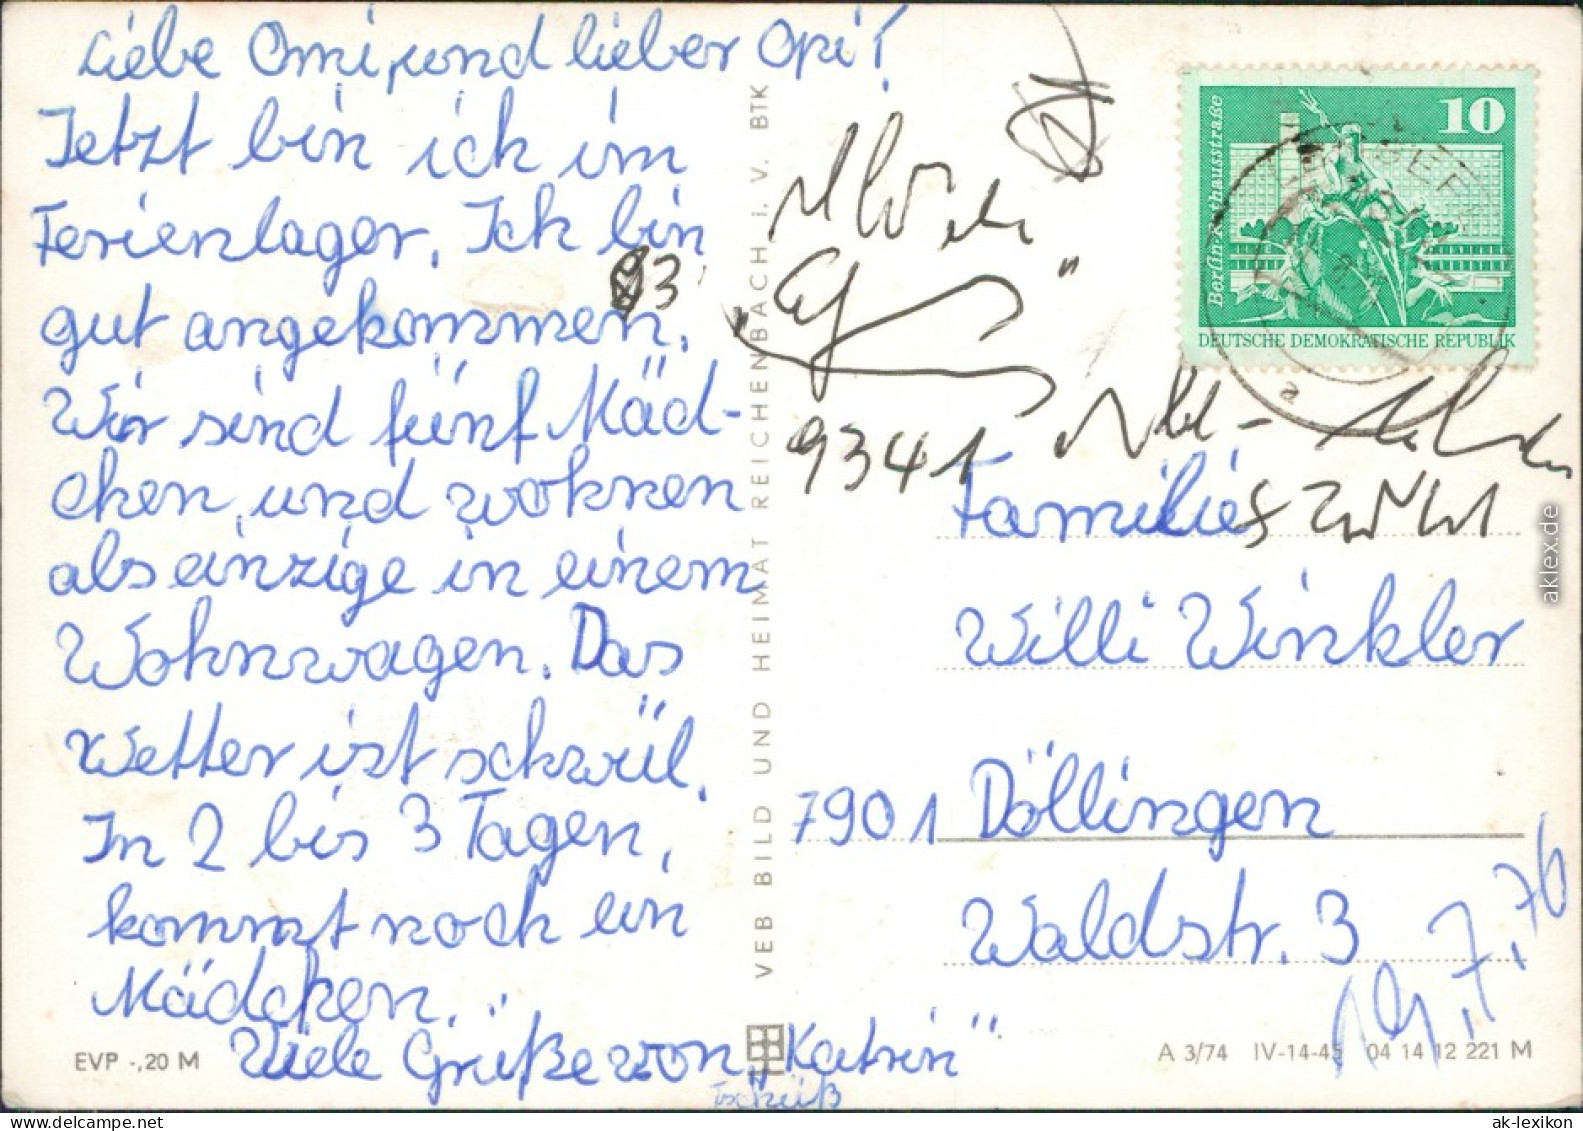 Liebe Omi, und lieber Opi!
Jetzt bin ich im
Ferienlager. Ich bin
gut angekommen.
Wir sind fünf Mäd-
chen, und wohnen
als einzige in einem
Wohnwagen. Das
Wetter ist schwül.
In 2 bis 3 Tagen,
kommt noch ein
Mädchen.
Viele Grüße von „Katrin"
Tschüß
EVP -,20 M
VEB BILD UND HEIMAT REICHENBACH I. V. BTK
93
9341
10
Berlin-Rathausstraße
DEUTSCHE DEMOKRATISCHE REPUBLIK
a
Familie
Willi Winkler
7901 Döllingen
Waldstr. 3
19.7.76
A 3/74 IV-14-45 04 14 12 221 M
aklex.de
ak-lexikon